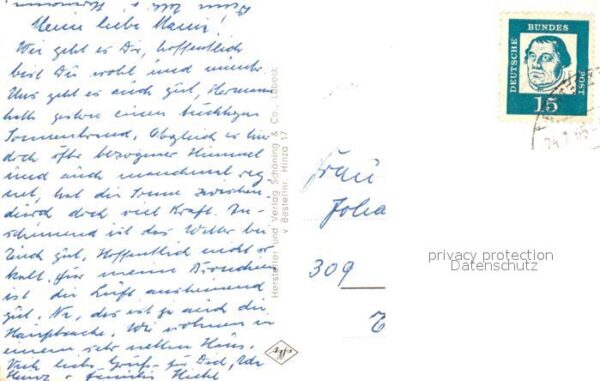 Meine liebe Mami!
Wie geht es Dir, hoffentlich
bist Du wohl und munter.
Uns geht es auch gut, Hermann
hatte gestern einen tüchtigen
Sonnenbrand, Obgleich es hier
doch öfter bezogener Himmel
und auch manchmal reg-
net, hat die Sonne zwischen-
durch doch viel Kraft. An-
scheinend ist das Wetter bei
Euch gut, Hoffentlich nicht so
kalt. für meine Bronchien
ist die Luft ausreichend
gut, Na, das ist ja auch die
Hauptsache. Wir wohnen in
einem sehr netten Haus.
Viele liebe Grüße für Dich,
Heinz u. Familie
Hersteller und Verlag Schöning & Co., Lübeck
Bestellnr. Hinzo 17
DEUTSCHE
BUNDES
POST
15
Frau
Joha
309
privacy protection
Datenschutz